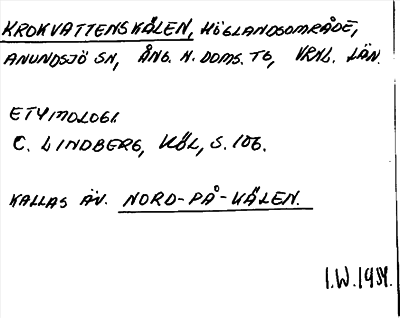 KROKVATTENSKÅLEN, HÖGLANDSOMRÅDE,
ANUNDSJÖ SN, ÅNG. N. DOMS. TG, VRNL. LÄN.
ETYMOLOGI.
C. LINDBERG, KÖL, S. 106.
KALLAS ÄV. NORD-PÅ-KÅLEN.
I.W. 1984.